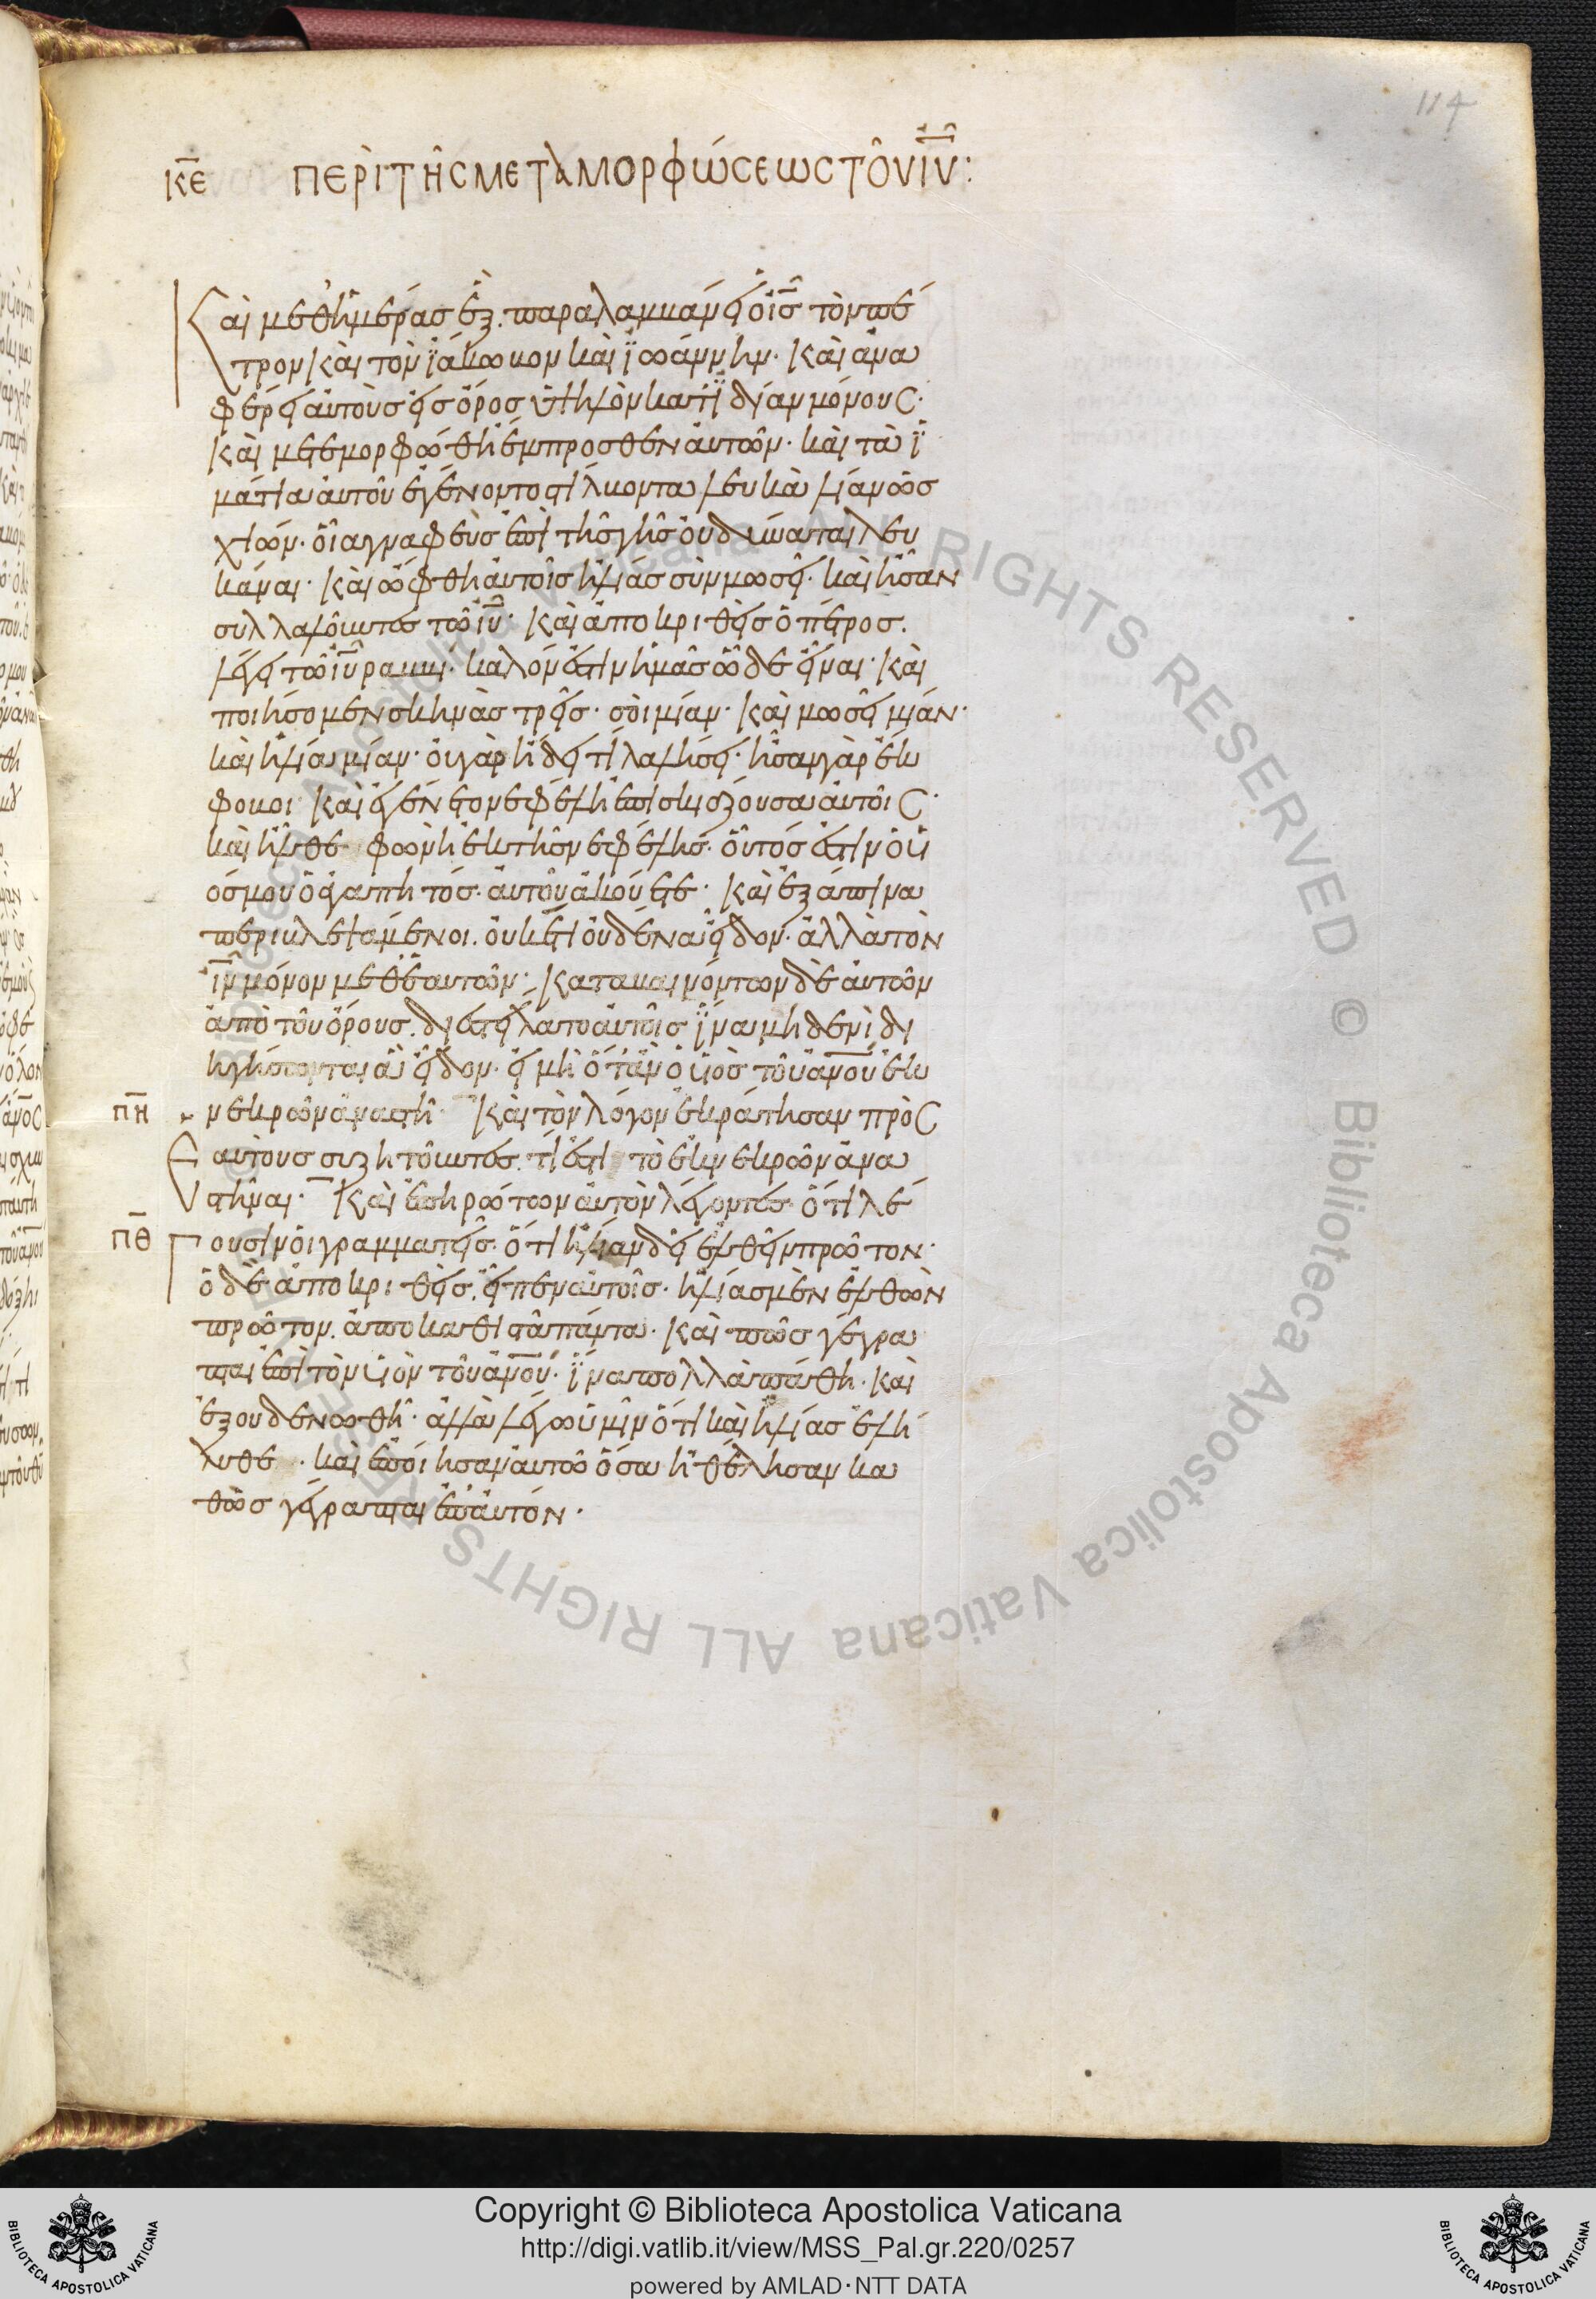 114
κ̅ε̅ ΠΕΡὶ ΤῆC ΜΕΤΑΜΟΡΦώCΕωC ΤΟῦ ἰ̅υ̅:
Καὶ μεθ ἡμέρας ἓξ. παραλαμβάνει ὁ ι̅ς̅ τὸν πέ
τρον καὶ τὸν ϊάκωβον καὶ ϊωάννην· καὶ ἀνα
φέρει αὐτοὺς εἰς ὄρος ὑψηλὸν κατϊδίαν μόνους·
καὶ μετεμορφώθη ἔμπροσθεν αὐτῶν· καὶ τὰ ϊ
μάτια αὐτοῦ ἐγένοντο στίλβοντα λευκὰ λίαν ὡς
χιών· οἷα γναφεὺς ἐπὶ τῆς γῆς οὐ δύναται λευ
κάναι· καὶ ὤφθη αὐτοῖς ἠλίας σὺν μωσεῖ· καὶ ἦσαν
συλλαλοῦντες τῶ ι̅υ̅· καὶ ἀποκριθεὶς ὁ πέτρος.
λέγει τῶ ι̅υ̅ ραββι· καλόν ἐστιν ἡμᾶς ὧδε εἶναι· καὶ
ποιήσομεν σκηνὰς τρεῖς· σοὶ μίαν· καὶ μωσεῖ μίαν·
καὶ ἠλία μίαν· οὐ γὰρ ἤδει τί λαλήσει· ἦσαν γὰρ ἔκ
φοβοι καὶ ἐγένετο νεφέλη ἐπισκιάζουσα αὐτοῖς·
καὶ ἦλθε φωνὴ ἐκ τῆς νεφέλης· οὗτός ἐστιν ὁ υἱ
ός μου ὁ ἀγαπητός· αὐτοῦ ἀκούετε· καὶ ἐξάπινα
περιβλεψάμενοι. οὐκέτι οὐδένα εἶδον· ἀλλὰ τὸν
ι̅ν̅ μόνον μεθ ἑαυτῶν· καταβαινόντων δὲ αὐτῶν
ἀπὸ τοῦ ὄρους. διεστείλατο αὐτοῖς ϊνα μηδενὶ δι
ηγήσονται ἃ εἶδον· εἰ μὴ ὅταν ὁ υἱὸς τοῦ α̅ν̅ο̅υ̅ ἐκ
π̅η̅ νεκρῶν ἀναστῆ· καὶ τὸν λόγον ἐκράτησαν πρὸς
Ἑαυτοὺς συζητοῦντες. τί ἐστι τὸ ἐκ νεκρῶν ἀνα
στῆναι· καὶ ἐπηρώτων αὐτὸν λέγοντες ὅτι λέ
π̅θ̅ Γουσιν οἱ γραμματεῖς· ὅτι ἠλίαν δεῖ ἐλθεῖν πρῶτον·
ὁ δὲ ἀποκριθεὶς. εἶπεν αὐτοῖς· ἠλίας μὲν ἐλθὼν
πρῶτον. ἀποκαθιστᾶ πάντα· καὶ πῶς γέγρα
πται ἐπὶ τὸν υἱὸν τοῦ α̅ν̅ο̅υ̅· ϊνα πολλὰ πάθη· καὶ
ἐξουδενωθῆ· ἀλλὰ λέγω ὑμῖν ὅτι καὶ ἠλίας ἐλή
λυθε· καὶ ἐποίησαν αὐτῶ ὅσα ἠθέλησαν κα
θὼς γέγραπται ἐπ αὐτόν·
Copyright © Biblioteca Apostolica Vaticana
http://digi.vatlib.it/view/MSS_Pal.gr.220/0257
powered by AMLAD·NTT DATA
BIBLIOTECA APOSTOLICA VATICANA
BIBLIOTECA APOSTOLICA VATICANA
© Biblioteca Apostolica Vaticana ALL RIGHTS RESERVED © Biblioteca Apostolica Vaticana ALL RIGHTS RESERVED